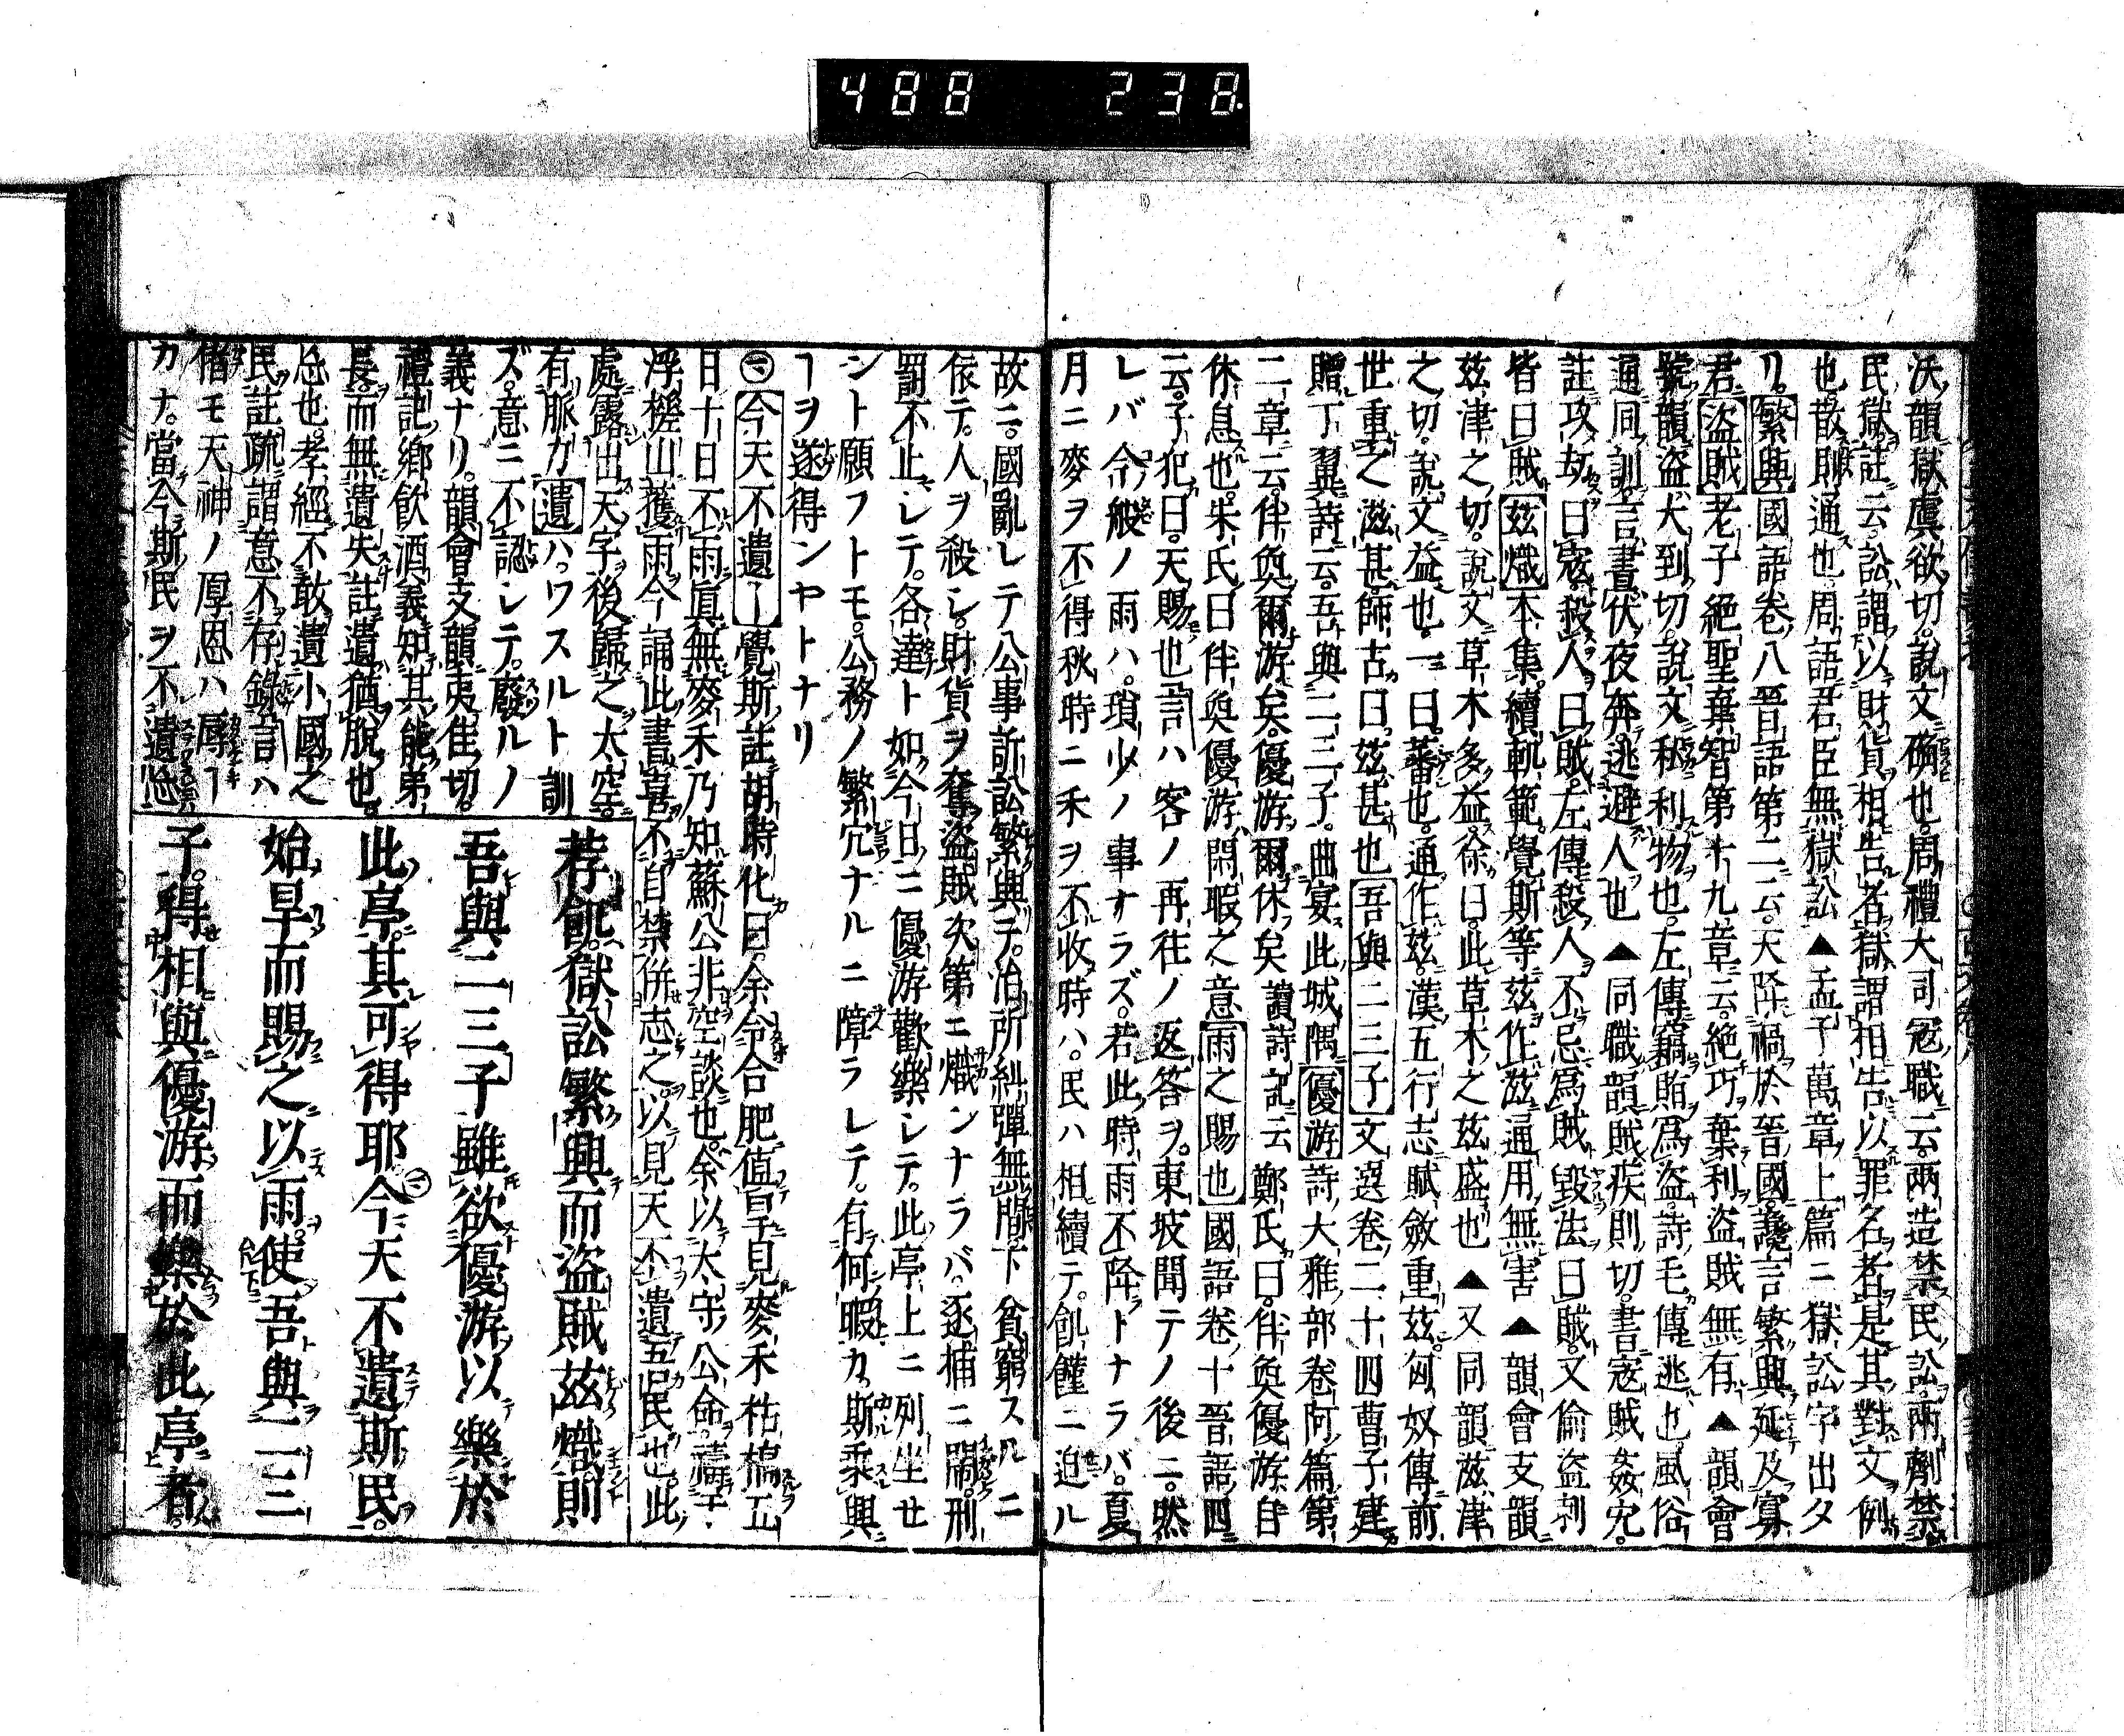 488 238
沃韻獄虞欲切說文确也周禮大司寇職云兩造禁民訟兩劑禁
民獄註云訟謂以財貨相告者獄謂相告以罪名者是其對文例
也散則通也周語君臣無獄訟▲孟子萬章上篇ニ獄訟字出タ
リ繁興國語卷八晉語第二云天降禍於晉國讒言繁興延及寡
君盜賊老子絕聖棄智第十九章云絕巧棄利盜賊無有▲韻會
號韻盜大到切說文私利物也左傳竊賄爲盜詩毛傳逃也風俗
通同訓言晝伏夜奔逃避人也▲同職韻賊疾則切書寇賊姦宄
註攻劫曰寇殺人曰賊左傳殺人不忌爲賊毀法曰賊又偷盜刼
皆曰賊茲熾本集續軌範覺斯等茲作滋通用無害▲韻會支韻
茲津之切說文草木多益徐曰此草木之茲盛也▲又同韻滋津
之切說文益也一曰蕃也通作茲漢五行志賦斂重茲匈奴傳前
世重之滋甚師古曰茲甚也吾與二三子文選卷二十四曹子建
贈丁翼詩云吾與二三子曲宴此城隅優游詩大雅部卷阿篇第
二章云伴奐爾游矣優游爾休矣讀詩記云鄭氏曰伴奐優游自
休息也朱氏曰伴奐優游閑暇之意雨之賜也國語卷十晉語四
云子犯曰天賜也言ハ客ノ再往ノ返答ヲ東坡聞テノ後ニ然
レバ今般ノ雨ハ瑣少ノ事ナラズ若此時雨不降トナラバ夏
月ニ麥ヲ不得秋時ニ禾ヲ不收時ハ民ハ相續テ飢饉ニ迫ル
故ニ國亂レテ公事訴訟繁興テ治所糾彈無間下貧窮スルニ
依テ人ヲ殺シ財貨ヲ奪盜賊次第ニ熾ンナラバ逐捕ニ鬧刑
罰不止レテ各達ト如今日ニ優游歡樂シテ此亭上ニ列坐セ
シト願フトモ公務ノ繁冗ナルニ障ラレテ有何暇カ斯乘興
ヿヲ遂得ンヤトナリ
㊁今天不遺ー覺斯註胡時化曰余令合肥値旱見麥禾枯槁五
日十日不雨眞無麥禾乃知蘇公非空談也余以太守公命禱于
浮槎山獲雨今誦此書喜不自禁併志之以見天不遺吾民也此
處露出天字後歸之太空
有脈カ遺ハワスルト訓
ズ意ニ不認レテ廢ルノ
義ナリ韻會支韻夷隹切
禮記鄉飲酒義知其能弟
長而無遺失註遺猶脫也
忘也孝經不敢遺小國之
民註疏謂意不存錄言ハ
偖モ天神ノ厚恩ハ辱ヿ
カナ當今斯民ヲ不遺忘
荐飢獄訟繁興而盜賊茲熾則
吾與二三子雖欲優游以樂於
此亭其可得耶㊁今天不遺斯民
始旱而賜之以雨使吾與二三
子得相與優游而樂於此亭者